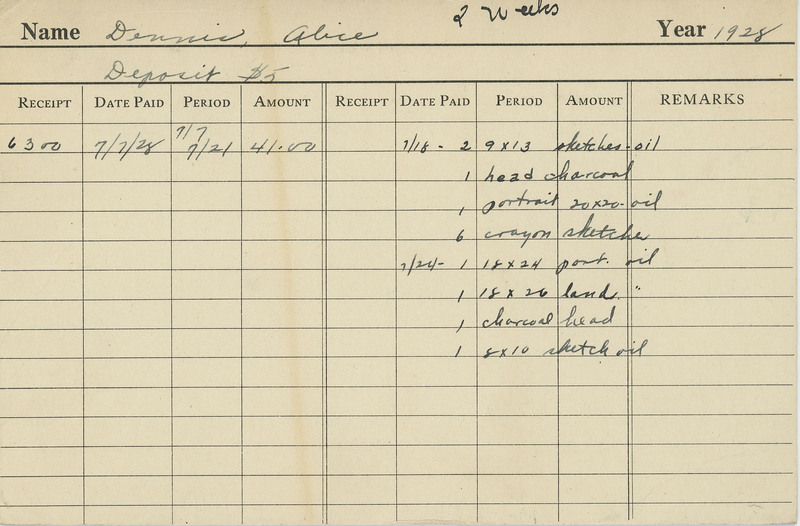 2 Weeks
Name Dennis, Alice Year 1928
Deposit $5
RECEIPT DATE PAID PERIOD AMOUNT RECEIPT DATE PAID PERIOD AMOUNT REMARKS
7/7
6300 7/7/28 7/21 41.00 7/18 - 2 9x13 sketches - oil
1 head charcoal
1 portrait 20x20 - oil
6 crayon sketches
7/24 - 1 18x24 port. oil
1 18x26 land. "
1 charcoal head
1 8x10 sketch oil